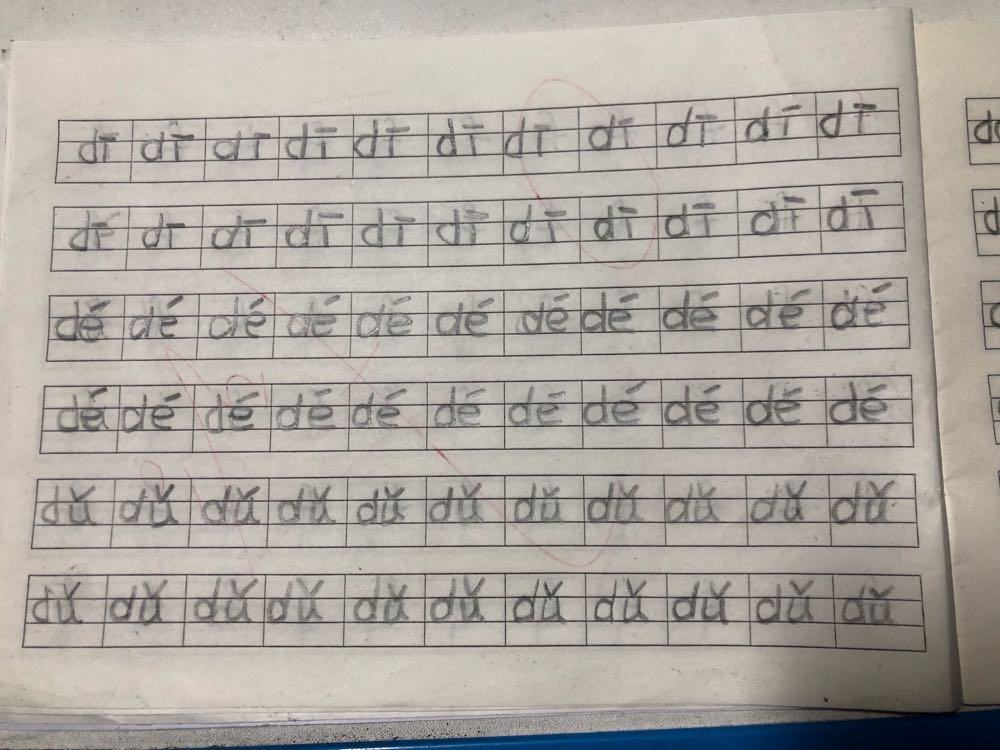 dī dī dī dī dī dī dī dī dī dī dī
dī dī dī dī dī dī dī dī dī dī dī
dé dé dé dé dé dé dé dé dé dé dé
dé dé dé dé dé dé dé dé dé dé dé
dǔ dǔ dǔ dǔ dǔ dǔ dǔ dǔ dǔ dǔ dǔ
dǔ dǔ dǔ dǔ dǔ dǔ dǔ dǔ dǔ dǔ dǔ